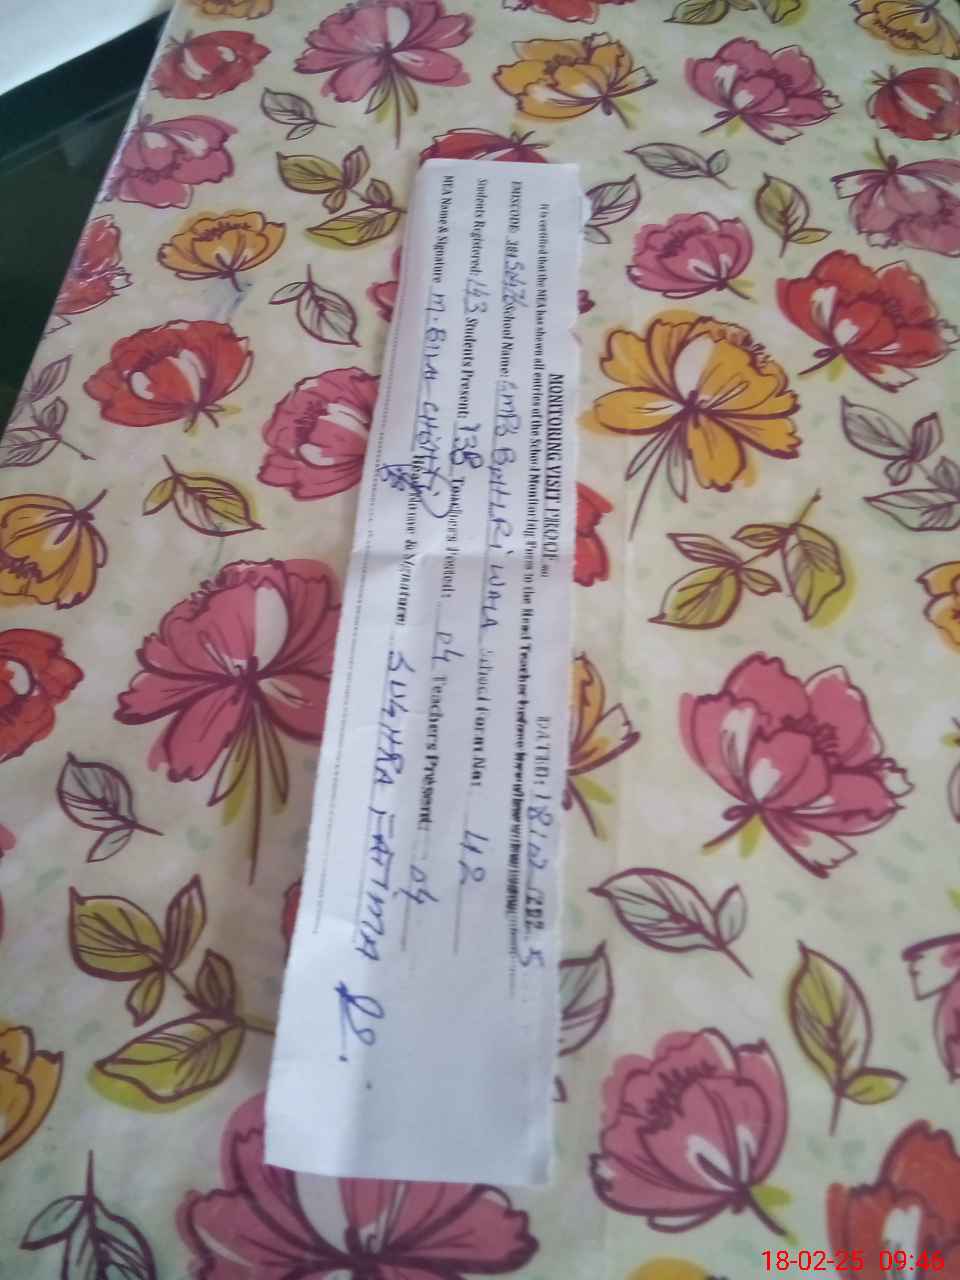 MONITORING VISIT PROOF DATED: 18/02/2025
It is certified that the MEA has shown all entries of the School Monitoring Form to the Head Teacher before
EMISCODE School Name: GMPS BHILRI WALA School Form No: 42
Students Registered: 143 Students Present: 138 Teachers Posted: 04 Teachers Present: 04
MEA Name & Signature M. BILAL CHISHTI Name & Signature: SUGHRA FATIMA
18-02-25 09:46